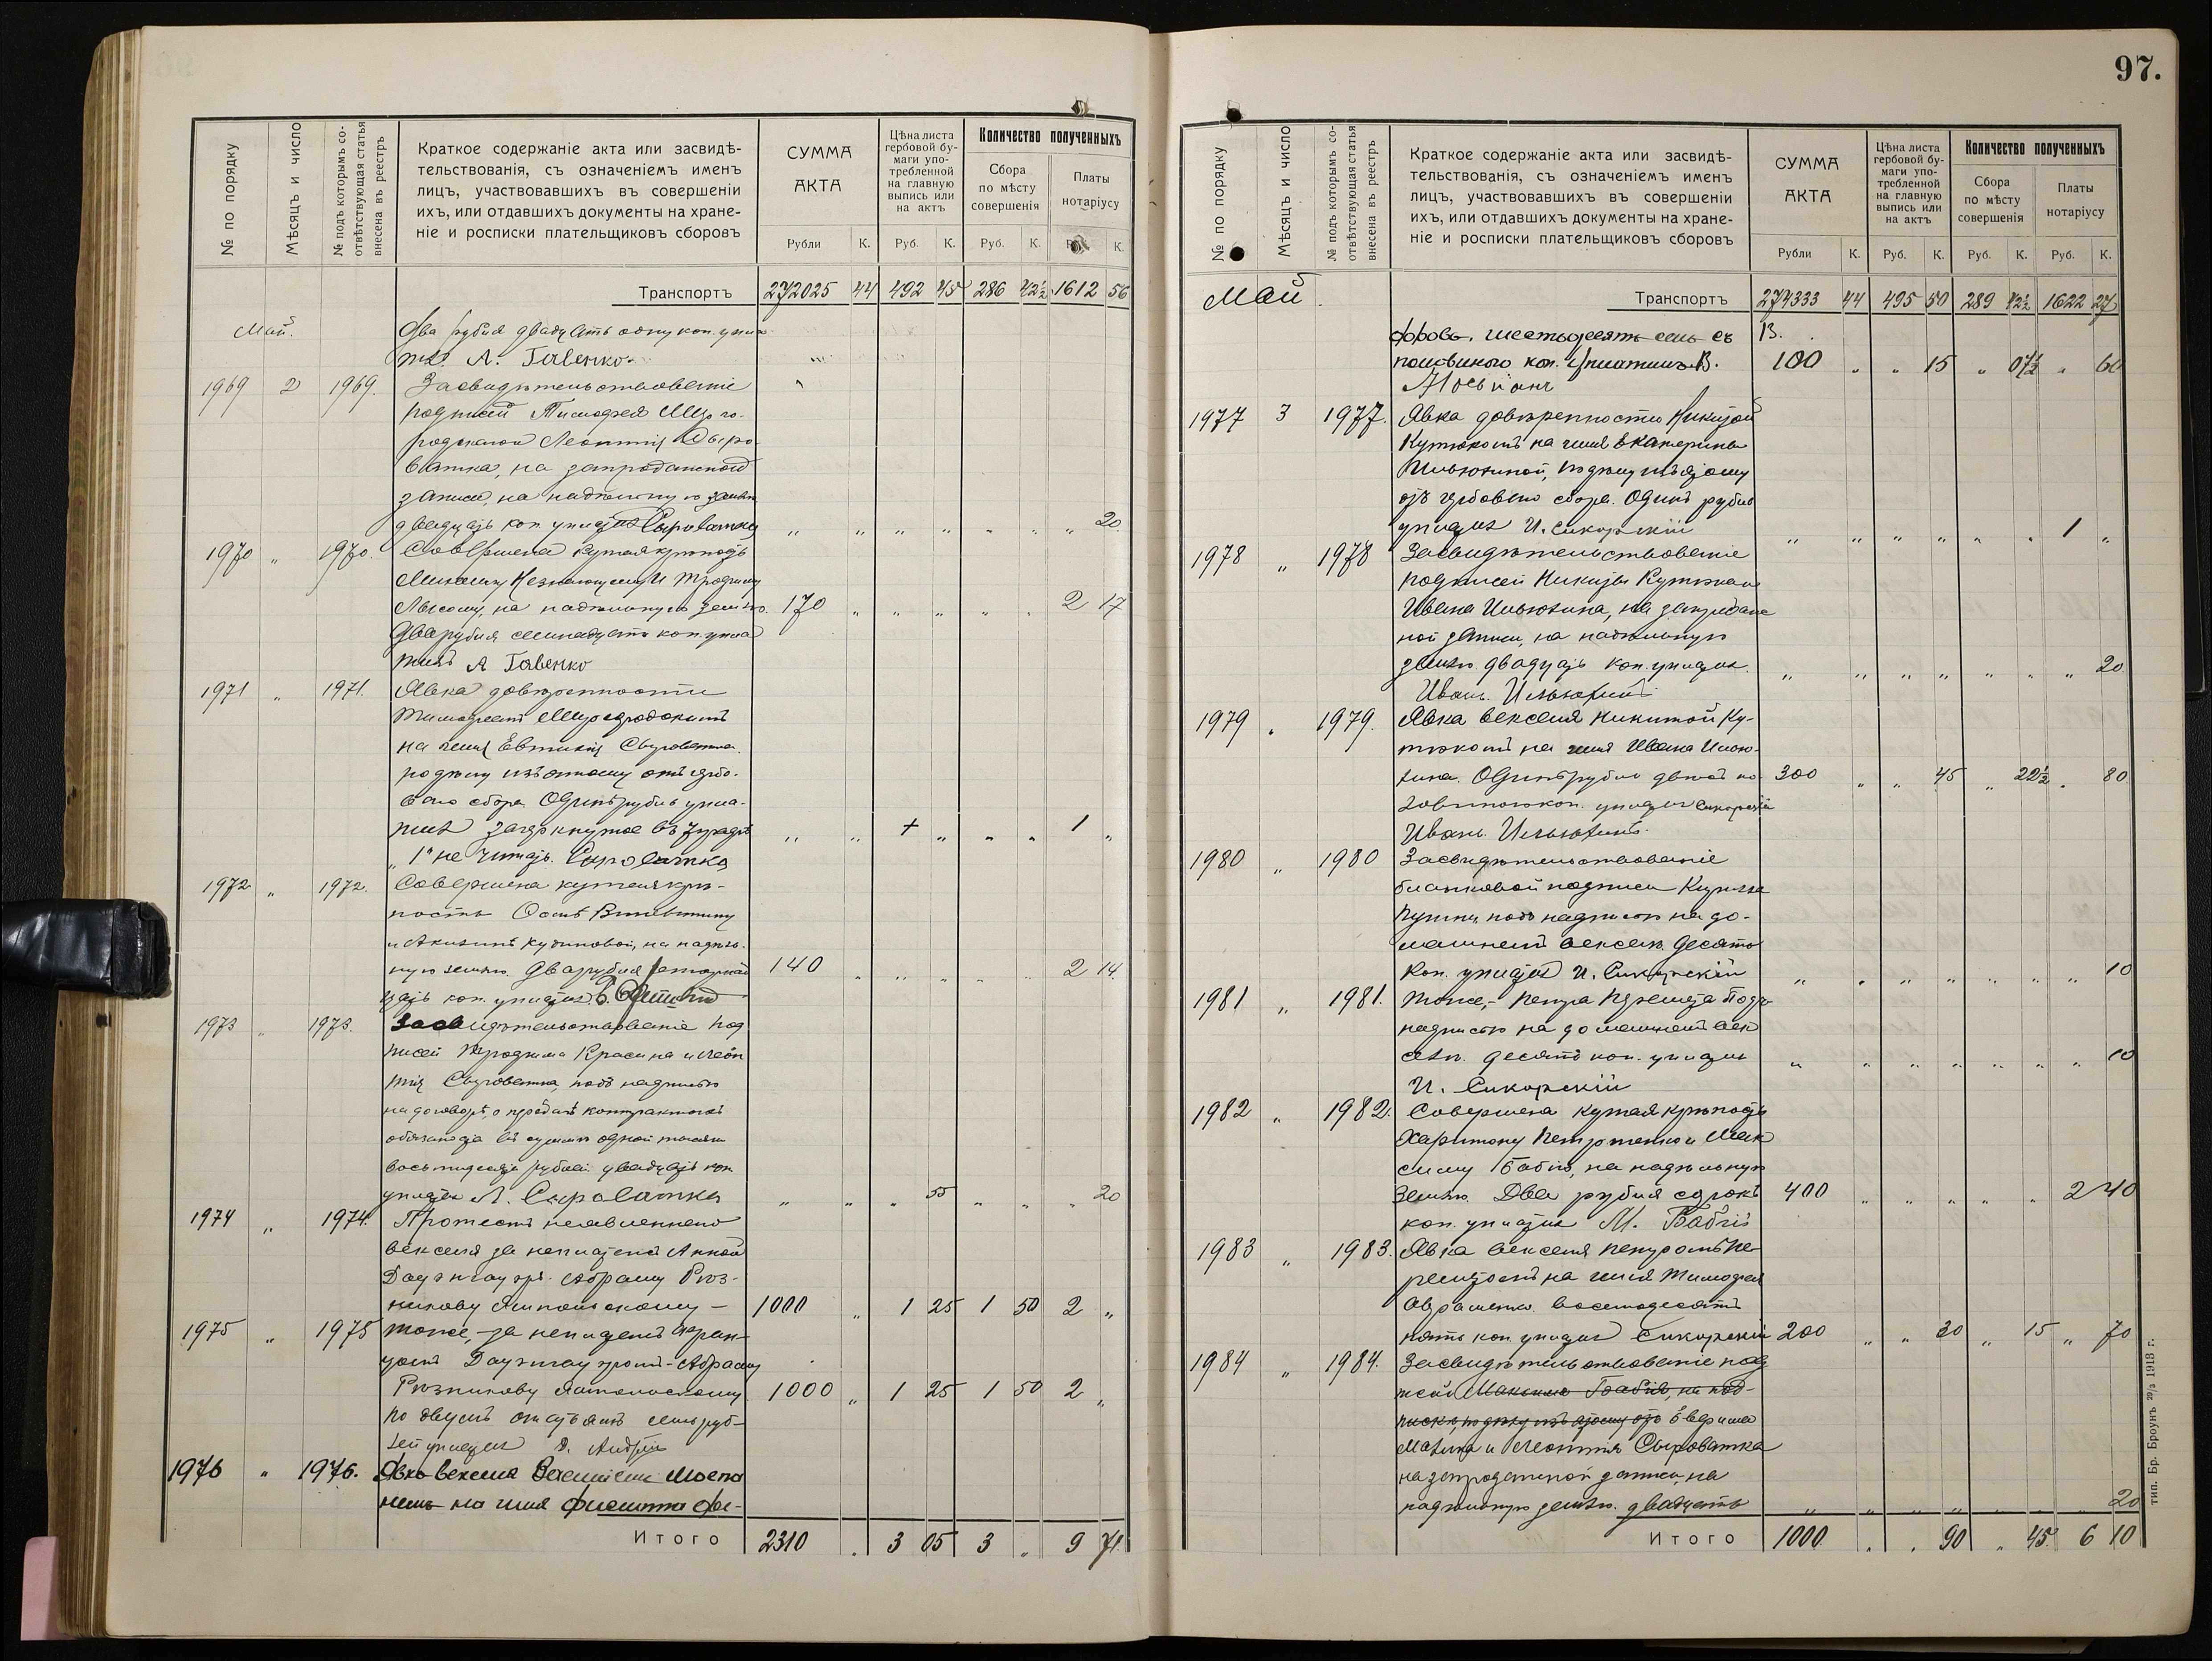 97.
№ по порядку
Мѣсяцъ и число
№ подъ которымъ соотвѣтствующая статья внесена въ реестръ
Краткое содержаніе акта или засвидѣ-
тельствованія, съ означеніемъ именъ
лицъ, участвовавшихъ въ совершеніи
ихъ, или отдавшихъ документы на хране-
ніе и росписки плательщиковъ сборовъ
СУММА
АКТА
Рубли К.
Цѣна листа
гербовой бу-
маги упо-
требленной
на главную
выпись или
на актъ
Руб. К.
Количество полученныхъ
Сбора
по мѣсту
совершенія
Руб. К.
Платы
нотаріусу
К.
Транспортъ 272025 44 492 45 286 42½ 1612 56
Май. Два рубля двадцать одну коп. упла-
тилъ А. Гавенко
1969 2 1969. Засвидѣтельствованіе
подписей Тимофея Миро го-
родскаго Леонтія Сыро
ватка, на запроданной
записи, на надѣльную землю
двадцать коп. уплатилъ Сыроватка „ „ „ „ „ „ „ 20
1970 „ 1970. Совершена купчая крѣпость
и Трофиму
Лысому, на надѣльную землю. 170 „ „ „ „ „ 2 17
Два рубля семнадцать коп. упла
тилъ А Гавенко
1971 „ 1971. Явка довѣренности
Тимофеемъ Миргородскимъ
на имя Евтихія Сыроватка
подлежу изъятому отъ гербо-
ваго сбора Одинъ рубль упла-
тилъ зачеркнутое въ графѣ „ „ + „ „ „ 1 „
„1“ не читать. Сыроватка
1972 „ 1972. Совершена купчая крѣ-
пость
на надѣль-
ную землю. Два рубля четырнад 140 „ „ „ „ „ 2 14.
цать коп. уплатилъ
1973 „ 1973. Засвидѣтельствованіе под
писей Трофима Красина и Леон
тія Сыроватка, подъ надписью
на договорѣ, о передачѣ контрактныхъ
обязательствъ въ суммѣ одной тысячи
восьмидесяти рублей двадцать коп.
уплатилъ Л. Сыроватка „ „ „ 55 „ „ „ 20
1974 „ 1974. Протестъ неявленнаго
векселя за неплатежъ Анной
Абраму Рѣз-
никову Ямпольскому – 1000 „ 1 25 1 50 2 „
1975 „ 1975 Тоже, – за неплатежъ Фран-
Абраму
Рѣзникову Ямпольскому 1000 „ 1 25 1 50 2 „
По двумъ статьямъ семь руб-
лей уплатилъ
1976 „ 1976. Явка векселя
на имя
Итого 2310 „ 3 05 3 „ 9 71.
№ по порядку
Мѣсяцъ и число
№ подъ которымъ соотвѣтствующая статья внесена въ реестръ
Краткое содержаніе акта или засвидѣ-
тельствованія, съ означеніемъ именъ
лицъ, участвовавшихъ въ совершеніи
ихъ, или отдавшихъ документы на хране-
ніе и росписки плательщиковъ сборовъ
СУММА
АКТА
Рубли К.
Цѣна листа
гербовой бу-
маги упо-
требленной
на главную
выпись или
на актъ
Руб. К.
Количество полученныхъ
Сбора
по мѣсту
совершенія
Руб. К.
Платы
нотаріусу
Руб. К.
Май. Транспортъ 274333 44 495 50 289 42½ 1622 27
шестьдесятъ семь съ В.
половиною коп. уплатилъ В. 100 „ „ 15 „ 07½ „ 60
1977 3 1977. Явка довѣренности Никитой
Кутькомъ на имя Екатерины
Ильюхиной, подлежу изъятому
отъ гербоваго сбора. Одинъ рубль
уплатилъ И. Сикорскій „ „ „ „ „ „ 1 „
1978 „ 1978 Засвидѣтельствованіе
подписей Никиты Кутька и
Ивана Ильюхина, на запродаж
ной записи, на надѣльную
землю двадцать коп. уплатилъ „ „ „ „ „ „ „ 20
Иванъ Ильюхинъ
1979 „ 1979. Явка векселя Никитой Ку-
тькомъ на имя Ивана Илью-
хина. Одинъ рубль 300 „ „ 45 „ 22½ „ 80
ловиною коп. уплатилъ Сикорскій
Иванъ Ильюхинъ
1980 „ 1980 Засвидѣтельствованіе
бланковой подписи
подъ надписью на до-
машнемъ векселѣ. Десять
коп. уплатилъ И. Сикорскій „ „ „ „ „ „ „ 10
1981 „ 1981. Тоже, – Петра Подъ
надписью на домашнемъ век
селѣ. десять коп. уплатилъ „ „ „ „ „ „ „ 10
И. Сикорскій
1982 „ 1982. Совершена купчая крѣпость
Харитону Петренко и Мак
симу Бабій, на надѣльную
землю. Два рубля сорокъ 400 „ „ „ „ „ 2 40
коп. уплатилъ М. Бабій
1983 „ 1983. Явка векселя Петромъ Пе-
на имя Тимофея
Авраменко восемьдесятъ
пять коп. уплатилъ Сикорскій 200 „ „ 30 „ 15 „ 70
1984 „ 1984. Засвидѣтельствованіе под
писей Максима Бабія, на под-
и Леонтія Сыроватка
на запроданной записи, на
надѣльную землю. двадцать „ „ „ „ „ „ „ 20
Итого 1000 „ „ 90 „ 45 6 10
тип. Бр. Броунъ ²⁹/₃ 1913 г.